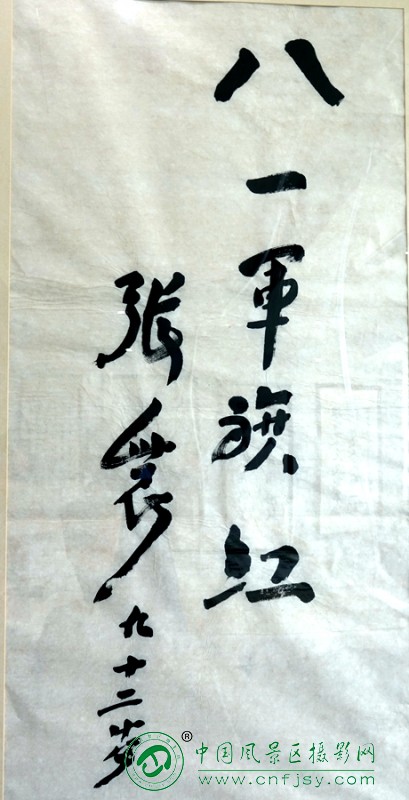 八一軍旗紅
張震九十二歲
®
中国风景区摄影网
www.cnfjsy.com